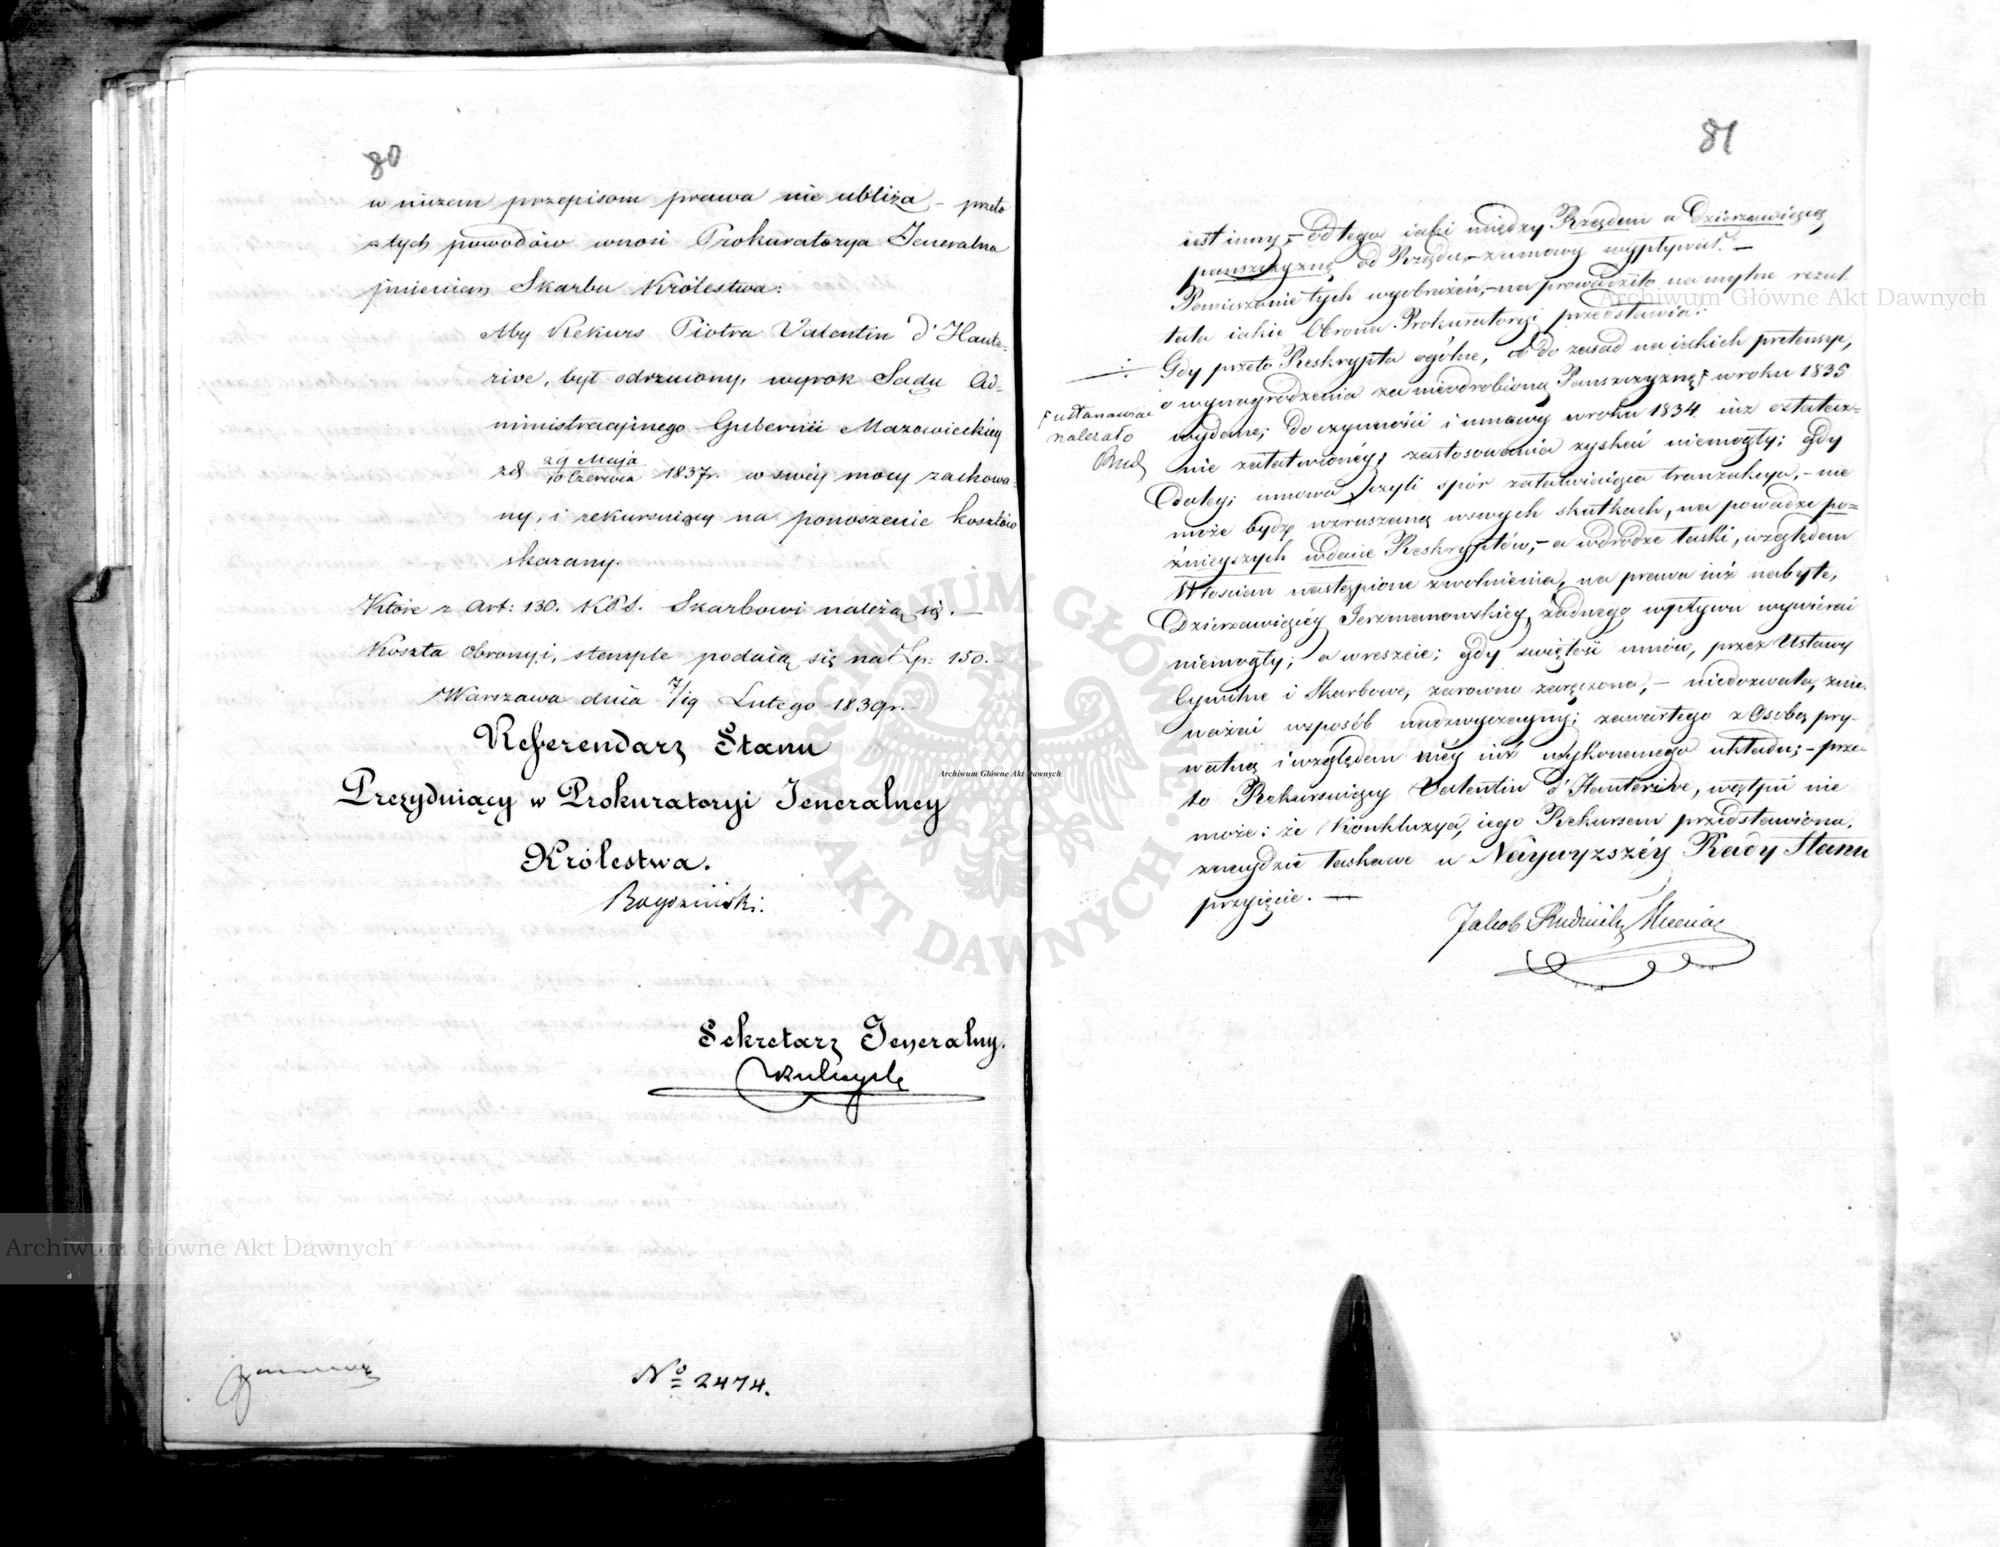 80
w niczem przepisom prawa nie ubliża – przeto
z tych powodów wnosi Prokuratorya Jeneralna
imieniem Skarbu Królestwa:
Aby Rekurs Piotra Valentin d'Haute-
rive, był odrzucony, wyrok Sądu Ad-
ministracyjnego Gubernii Mazowieckiey
z d 29 Maja / 10 Czerwca 1837 r. w swéy mocy zachowa-
ny, i rekursuiący na ponoszenie kosztów
skazany.
Które z Art: 130. KPS. Skarbowi należą się. —
Koszta obrony i stemple podaią się na Złp: 150.–
Warszawa dnia 7/19 Lutego 1839 r.–
Referendarz Stanu
Prezyduiący w Prokuratoryi Jeneralney
Królestwa.
Sekretarz Jeneralny.
No 2474.
81
iest inny, – od tego iaki między Rządem a Dzierzawiącą
panszczyznę od Rządu, – z umowy wypływał. –
Pomieszanie tych wyobrażeń, – na prowadziło na mylne rezul-
tata iakie Obrona Prokuratoryi przedstawia:
Gdy przeto Reskrypta ogólne, co do zasad na iakich pretensye,
o wynagrodzenia za nieodrobioną Panszczyznę w roku 1835
ustanawiać
należało
wydane; do czynności i umowy w roku 1834 iuż ostatecz-
nie załatwionéy; zastosowania zyskać niemogły: gdy
daléy; umowa czyli spór załatwiaiąca tranzakcya, – nie
może bydź wzruszaną w swych skutkach, na powadze po=
źnieyszych wdanie Reskryptów, – a w drodze łaski, względem
Włoscian nastąpione zwolnienia, na prawa iuż nabyte,
Dzierzawiącéy Jerzmanowskiey, żadnego wpływu wywierać
niemogły; a wreszcie; gdy swiętość umów, przez Ustawy
Cywilne i Skarbowe, zarówno zaręczona, – niedozwala, znie-
ważać w sposób nadzwyczayny; zawartego z Osobą pry-
watną i względem niéy iuż wykonanego układu; – prze-
to Rekursuiący Valentin d'Hauterive, wątpić nie
może: że Konkluzya, iego Rekursem przedstawiona,
znaydzie łaskawe u Naywyzszéy Rady Stanu
przyięcie. —
Archiwum Główne Akt Dawnych
Archiwum Główne Akt Dawnych
Archiwum Główne Akt Dawnych
ARCHIWUM GŁÓWNE AKT DAWNYCH